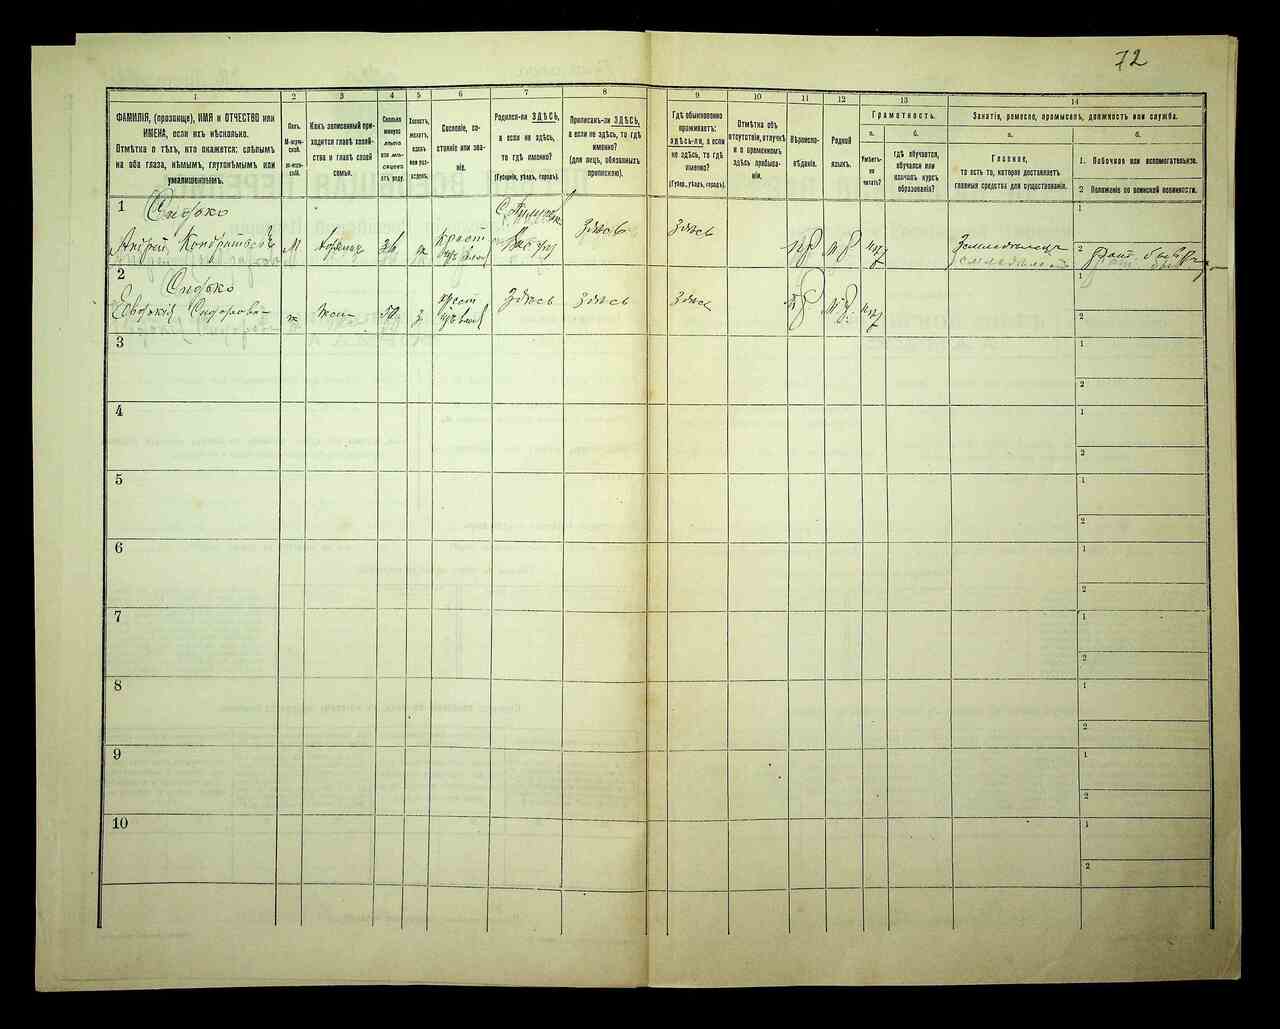 72
1
2
3
4
5
6
7
8
9
10
11
12
13
14
ФАМИЛІЯ, (прозвище), ИМЯ и ОТЧЕСТВО или
ИМЕНА, если ихъ нѣсколько.
Отмѣтка о тѣхъ, кто окажется: слѣпымъ
на оба глаза, нѣмымъ, глухонѣмымъ или
умалишеннымъ.
Полъ.
М-муж-
ской.
Ж-жен-
скій.
Какъ записанный при-
ходится главѣ хозяй-
ства и главѣ своей
семьи.
Сколько
минуло
лѣтъ
или мѣ-
сяцевъ
отъ роду.
Холостъ,
женатъ,
вдовъ
или раз-
веденъ.
Сословіе, со-
стояніе или зва-
ніе.
Родился-ли ЗДѢСЬ,
а если не здѣсь,
то гдѣ именно?
(Губернія, уѣздъ, городъ).
Приписанъ-ли ЗДѢСЬ,
а если не здѣсь, то гдѣ
именно?
(для лицъ, обязанныхъ
припискою).
Гдѣ обыкновенно
проживаетъ:
здѣсь-ли, а если
не здѣсь, то гдѣ
именно?
(Губер., уѣздъ, городъ).
Отмѣтка объ
отсутствіи, отлучкѣ
и о временномъ
здѣсь пребыва-
ніи.
Вѣроиспо-
вѣданіе.
Родной
языкъ.
Грамотность.
а.
б.
Умѣетъ-
ли
читать?
гдѣ обучается,
обучался или
кончилъ курсъ
образованія?
Занятіе, ремесло, промыселъ, должность или служба.
а.
б.
Главное,
то есть то, которое доставляетъ
главныя средства для существованія.
1. Побочное или вспомогательное.
2 Положеніе по воинской повинности.
1
Сидорко
Андрей Кондратьевъ
М
36
Здѣсь
Здѣсь
Земледѣлецъ
1
2
2
Сидорко
Евдокія Сидорова
ж
жена
50
з
Здѣсь
Здѣсь
Здѣсь
1
2
3
1
2
4
1
2
5
1
2
6
1
2
7
1
2
8
1
2
9
1
2
10
1
2